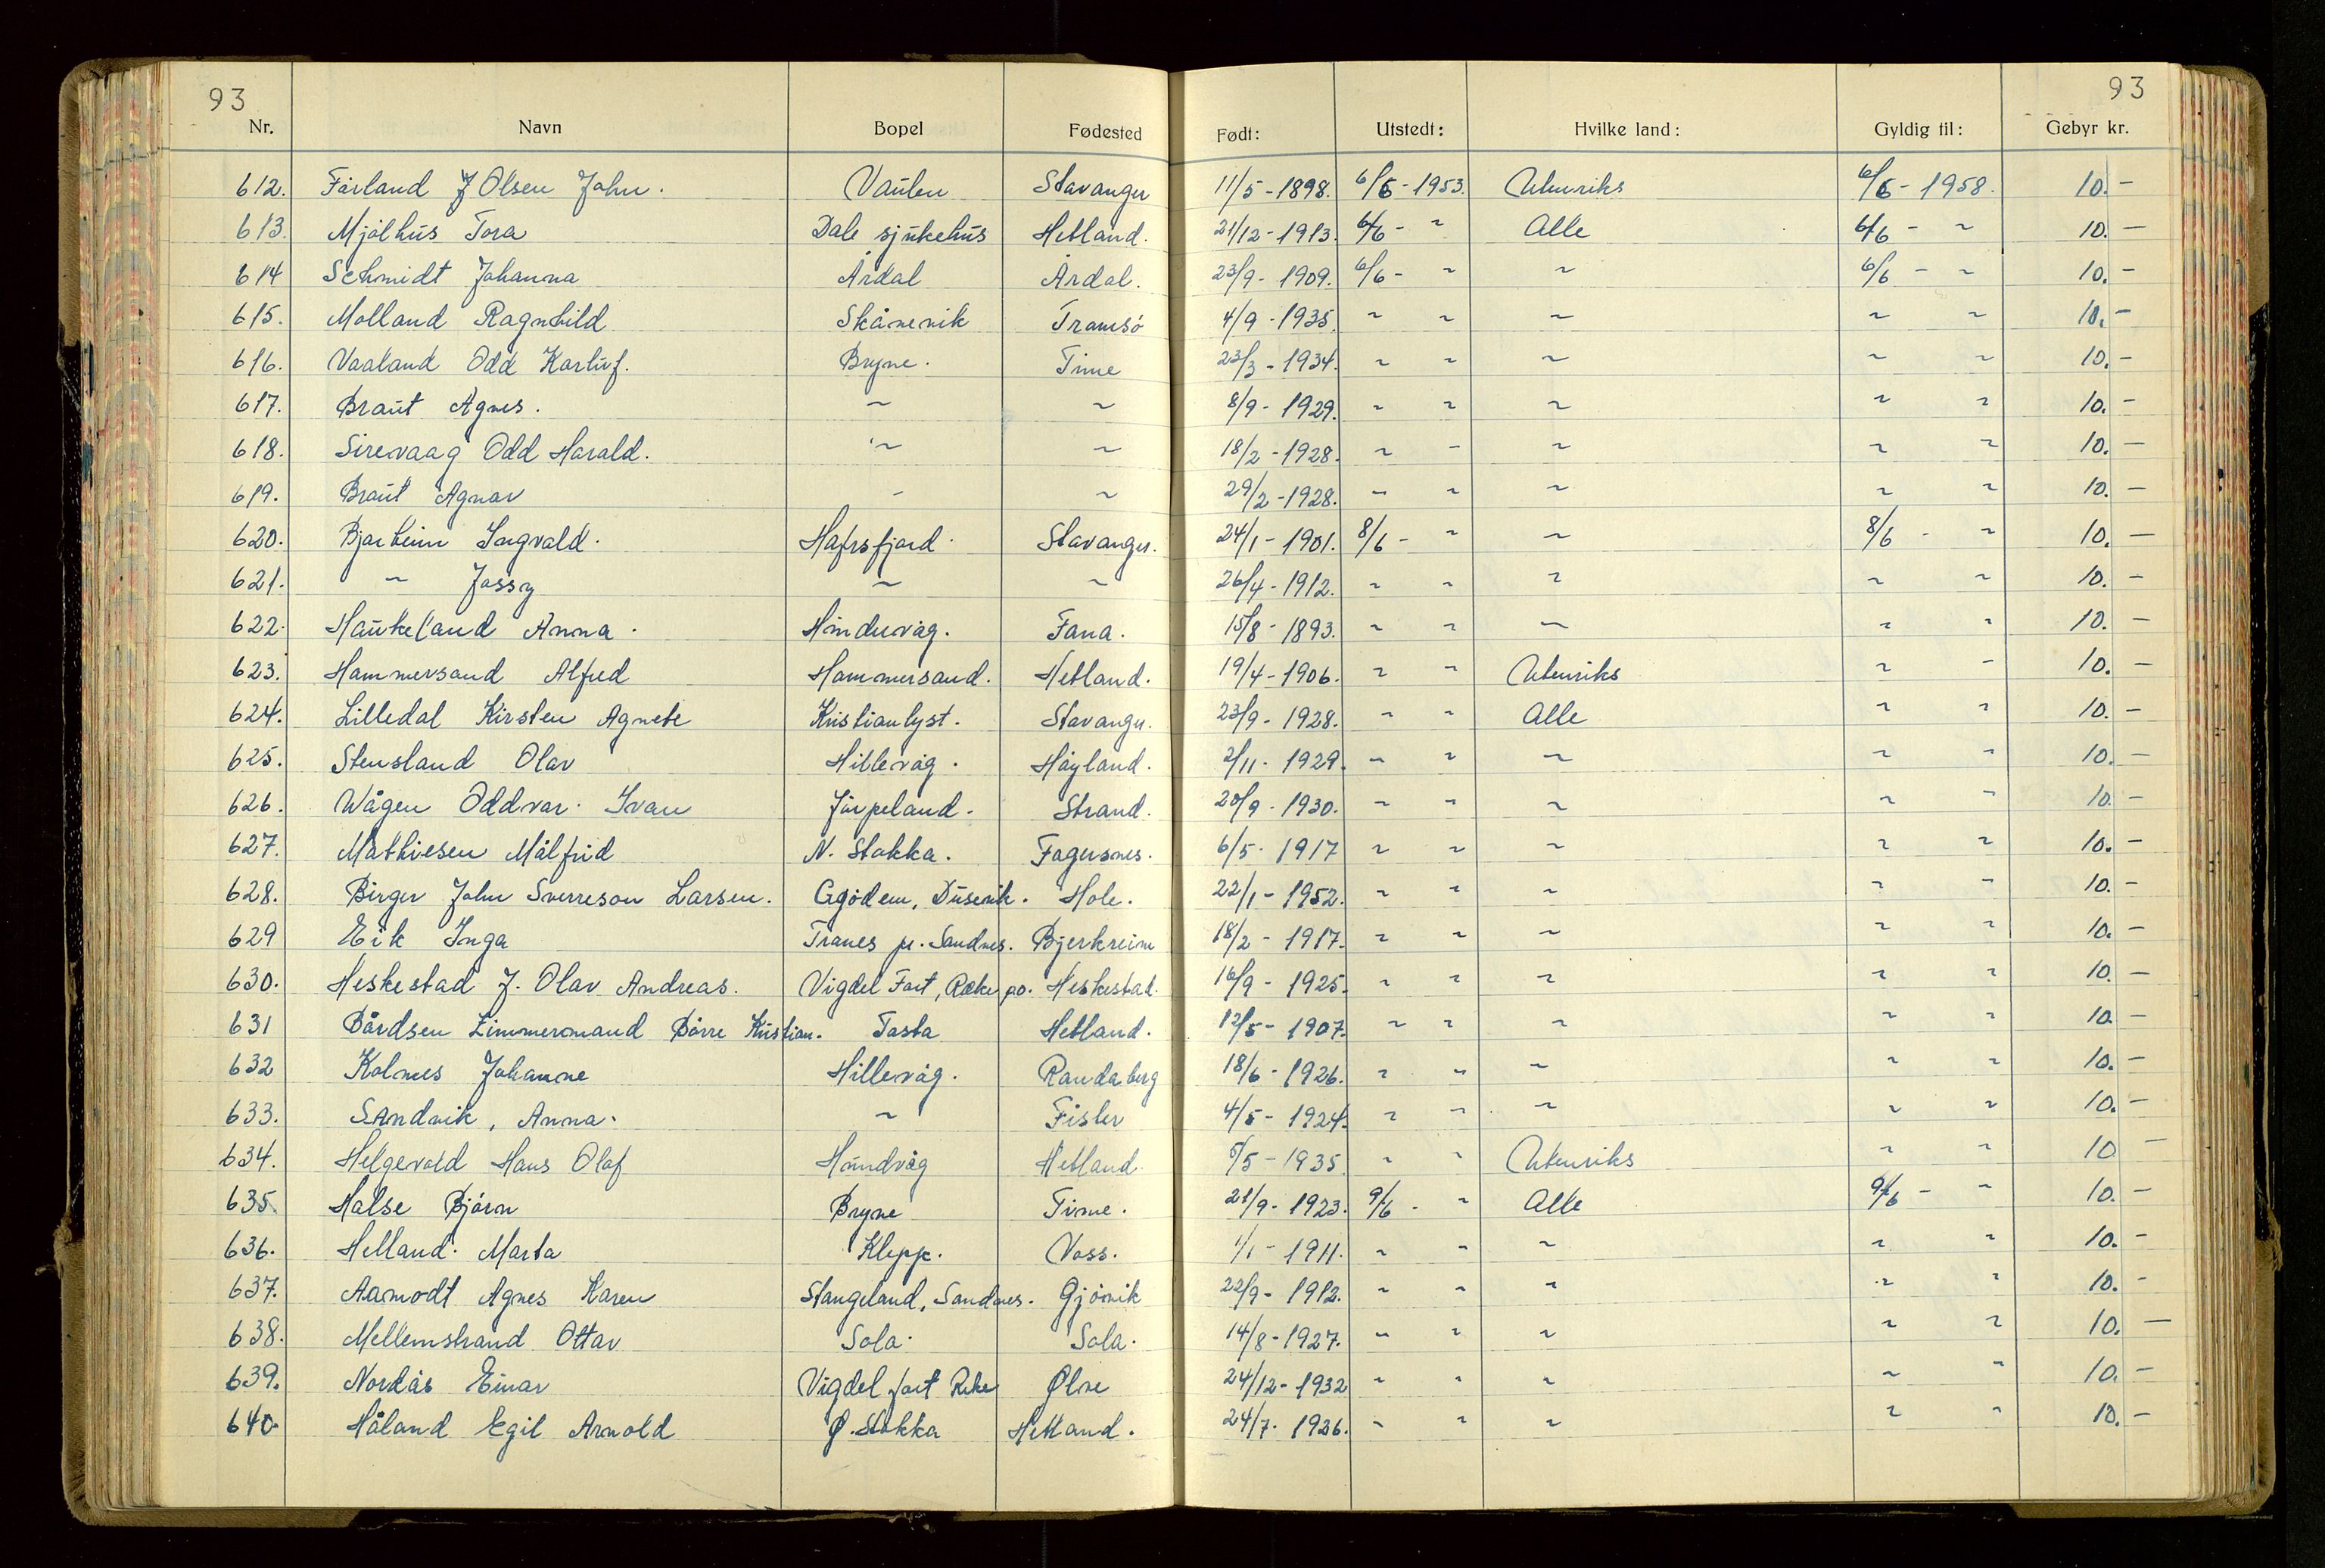 93 93
Nr. Navn Bopel Fødested Født: Utstedt: Hvilke land: Gyldig til: Gebyr kr.
612. Førland J Olsen John. Vaulen Stavanger 11/5-1898. 6/6-1953. Utenriks 6/6-1958. 10.-
613. Mjølhus Tora Dale sjukehus Hetland. 21/12-1913. 6/6- " Alle 6/6 - " 10.-
614 Schmidt Johanna Årdal Årdal. 23/9-1909. 6/6- " " 6/6 - " 10.-
615. Molland Ragnhild Skånevik Tromsø 4/9-1935. " " " " " 10.-
616. Vaaland Odd Karluf. Bryne. Time 23/3-1934. " " " " " 10.-
617. Braut Agnes. " " 8/9-1929. " " " " " 10.-
618. Sirevaag Odd Harald. " " 18/2-1928. " " " " " 10.-
619. Braut Agnar " " 29/2-1928. " " " " " 10.-
620. Bjarheim Ingvald. Hafrsfjord. Stavanger. 24/1-1901. 8/6- " " 8/6 - " 10.-
621. " Jossy " " 26/4-1912. " " " " " 10.-
622. Haukeland Anna. Hundvåg. Fana. 15/8-1893. " " " " " 10.-
623. Hammersand Alfred Hammersand. Hetland. 19/4-1906. " " Utenriks " " 10.-
624. Lilledal Kirsten Agnete Kristianlyst. Stavanger. 23/9-1928. " " Alle " " 10.-
625. Stensland Olav Hillevåg. Høyland. 2/11-1929. " " " " " 10.-
626. Wågen Oddvar Ivan Jørpeland. Strand. 20/9-1930. " " " " " 10.-
627. Mathiesen Målfrid N. Stokka. Fagernes. 6/5-1917 " " " " " 10.-
628. Birger John Sverreson Larsen. Dusevik. Hole. 22/1-1952. " " " " " 10.-
629 Eik Inga Tranes pr. Sandnes. Bjerkreim 18/2-1917. " " " " " 10.-
630. Heskestad J. Olav Andreas. Vigdel Fort, Ræke po. Heskestad. 16/9-1925. " " " " " 10.-
631 Bårdsen Zimmermand Børre Kristian. Tasta Hetland. 12/5-1907. " " " " " 10.-
632 Kolnes Johanne Hillevåg. Randaberg 18/6-1926. " " " " " 10.-
633. Sandvik, Anna. " Fister 4/5-1924. " " " " " 10.-
634. Helgevold Hans Olaf Hundvåg Hetland 5/5-1935. " " Utenriks " " 10 -
635. Halse Bjørn Bryne Time. 21/9-1923. 9/6- " Alle 9/6 - " 10.-
636. Helland. Marta Klepp. Voss. 1/1-1911. " " " " " 10.-
637. Aamodt Agnes Karen Stangeland, Sandnes. Gjøvik 22/9-1912. " " " " " 10.-
638. Mellemstrand Ottar Sola. Sola. 14/8-1927. " " " " " 10.-
639. Nordås Einar Vigdel fort Ræke Ølve 24/12-1932 " " " " " 10.-
640 Håland Egil Arnold Ø. Stokka Hetland. 24/7-1936. " " " " " 10.-